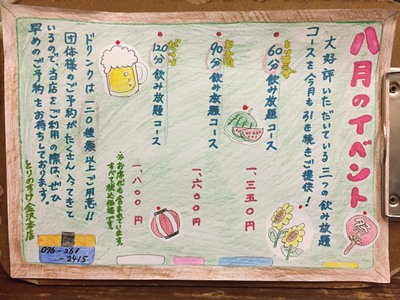 八月のイベント
大好評いただいている三つの飲み放題
コースを今月も引き続きご提供!
とりあえず
60分飲み放題コース
一、三五〇円
90分飲み放題コース
一、六〇〇円
120分飲み放題コース
一、八〇〇円
※お席代も含まれています。
すべて税込価格です。
ドリンクは一二〇種類以上ご用意!!
団体様のご予約がたくさん入ってきて
いるので、当店をご利用の際は、ぜひ
早めのご予約をお待ちしております。
とりのすけ金沢本店
076-251
-2415
祭